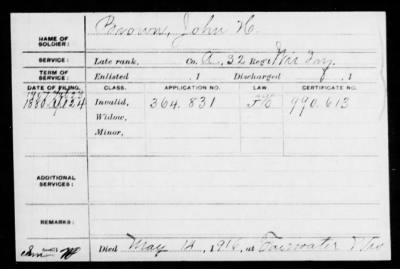 NAME OF SOLDIER: Brown, John H.
SERVICE: Late rank, Co. A, 32 Reg't Wis Inf.
TERM OF SERVICE: Enlisted , 1 Discharged , 1
DATE OF FILING. CLASS. APPLICATION NO. LAW. CERTIFICATE NO.
1880 Invalid, 364.831 990.613
Widow,
Minor,
ADDITIONAL SERVICES:
REMARKS:
Died May 14, 1916, at Fairwater Wis